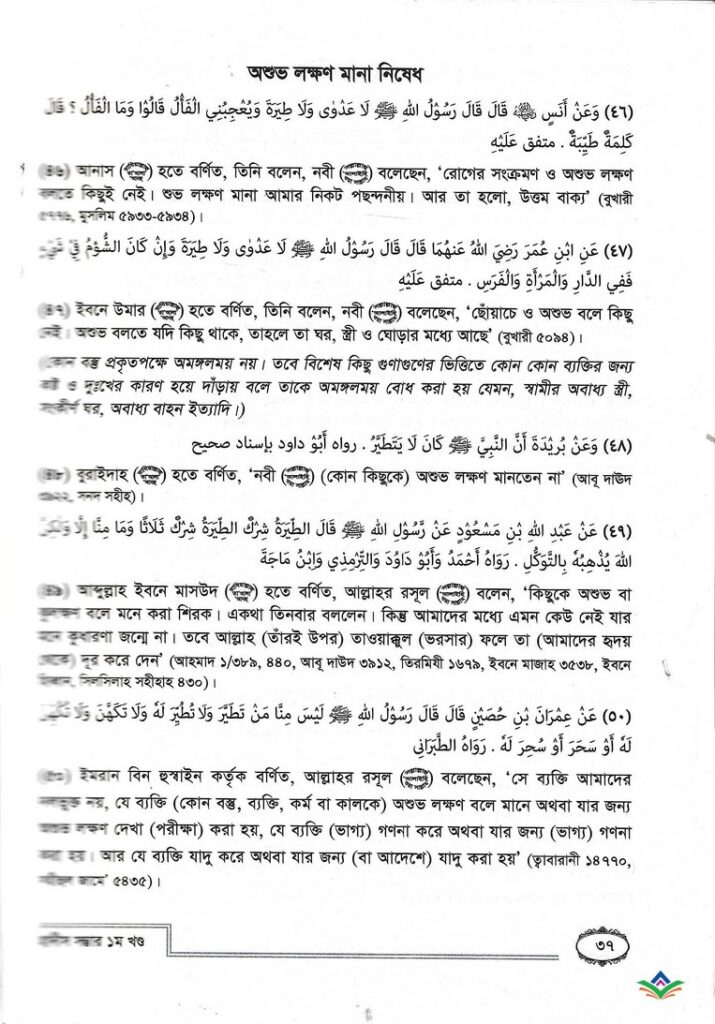 অশুভ লক্ষণ মানা নিষেধ
(٤٦) وَعَنْ أَنَسٍ قَالَ قَالَ رَسُوْلُ اللهِ ﷺ لَا عَدْوٰى وَلَا طِيَرَةَ وَيُعْجِبُنِي الْفَأْلُ قَالُوْا وَمَا الْفَأْلُ ؟ قَالَ
كَلِمَةٌ طَيِّبَةٌ . متفق عَلَيْهِ
আনাস হতে বর্ণিত, তিনি বলেন, নবী বলেছেন, ‘রোগের সংক্রমণ ও অশুভ লক্ষণ
বলতে কিছুই নেই। শুভ লক্ষণ মানা আমার নিকট পছন্দনীয়। আর তা হলো, উত্তম বাক্য’ (বুখারী
মুসলিম ৫৯৩৩-৫৯৩৪)।
(٤٧) عَنِ ابْنِ عُمَرَ رَضِيَ اللهُ عَنْهُمَا قَالَ قَالَ رَسُوْلُ اللهِ ﷺ لَا عَدْوٰى وَلَا طِيَرَةَ وَإِنْ كَانَ الشُّؤْمُ فِي شَيْءٍ
فَفِي الدَّارِ وَالْمَرْأَةِ وَالْفَرَسِ . متفق عَلَيْهِ
ইবনে উমার হতে বর্ণিত, তিনি বলেন, নবী বলেছেন, ‘ছোঁয়াচে ও অশুভ বলে কিছু
নেই। অশুভ বলতে যদি কিছু থাকে, তাহলে তা ঘর, স্ত্রী ও ঘোড়ার মধ্যে আছে’ (বুখারী ৫০৯৪)।
(কোন বস্তু প্রকৃতপক্ষে অমঙ্গলময় নয়। তবে বিশেষ কিছু গুণাগুণের ভিত্তিতে কোন কোন ব্যক্তির জন্য
ও দুঃখের কারণ হয়ে দাঁড়ায় বলে তাকে অমঙ্গলময় বোধ করা হয় যেমন, স্বামীর অবাধ্য স্ত্রী,
ঘর, অবাধ্য বাহন ইত্যাদি।)
(٤٨) وَعَنْ بُرَيْدَةَ أَنَّ النَّبِيَّ ﷺ كَانَ لَا يَتَطَيَّرُ . رواه أَبُوْ داود بإسناد صحيح
বুরাইদাহ হতে বর্ণিত, ‘নবী (কোন কিছুকে) অশুভ লক্ষণ মানতেন না’ (আবূ দাঊদ
সনদ সহীহ)।
(٤٩) عَنْ عَبْدِ اللهِ بْنِ مَسْعُوْدٍ عَنْ رَّسُوْلِ اللهِ ﷺ قَالَ الطِّيَرَةُ شِرْكٌ الطِّيَرَةُ شِرْكٌ ثَلَاثًا وَمَا مِنَّا إِلَّا وَلَكِنَّ
اللهَ يُذْهِبُهُ بِالتَّوَكُّلِ . رَوَاهُ أَحْمَدُ وَأَبُوْ دَاوُدَ وَالتِّرْمِذِي وَابْنُ مَاجَةَ
আব্দুল্লাহ ইবনে মাসউদ হতে বর্ণিত, আল্লাহর রসূল বলেন, ‘কিছুকে অশুভ বা
বলে মনে করা শিরক। একথা তিনবার বললেন। কিন্তু আমাদের মধ্যে এমন কেউ নেই যার
মনে কুধারণা জন্মে না। তবে আল্লাহ (তাঁরই উপর) তাওয়াক্কুল (ভরসার) ফলে তা (আমাদের হৃদয়
থেকে) দূর করে দেন’ (আহমাদ ১/৩৮৯, ৪৪০, আবূ দাউদ ৩৯১২, তিরমিযী ১৬৭৯, ইবনে মাজাহ ৩৫৩৮, ইবনে
সিলসিলাহ সহীহাহ ৪৩০)।
(٥٠) عَنْ عِمْرَانَ بْنِ حُصَيْنٍ قَالَ قَالَ رَسُوْلُ اللهِ ﷺ لَيْسَ مِنَّا مَنْ تَطَيَّرَ وَلَا تُطُيِّرَ لَهُ وَلَا تَكَهَّنَ وَلَا تُكُهِّنَ
لَهُ أَوْ سَحَرَ أَوْ سُحِرَ لَهُ . رَوَاهُ الطَّبَرَانِي
ইমরান বিন হুস্বাইন কর্তৃক বর্ণিত, আল্লাহর রসূল বলেছেন, ‘সে ব্যক্তি আমাদের
নয়, যে ব্যক্তি (কোন বস্তু, ব্যক্তি, কর্ম বা কালকে) অশুভ লক্ষণ বলে মানে অথবা যার জন্য
অশুভ লক্ষণ দেখা (পরীক্ষা) করা হয়, যে ব্যক্তি (ভাগ্য) গণনা করে অথবা যার জন্য (ভাগ্য) গণনা
করা হয়। আর যে ব্যক্তি যাদু করে অথবা যার জন্য (বা আদেশে) যাদু করা হয়’ (ত্বাবারানী ১৪৭৭০,
৫৪৩৫)।
১ম খণ্ড
৩৭